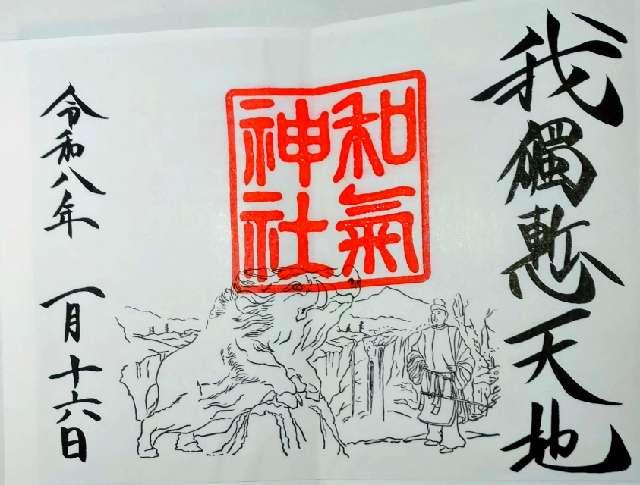 我獨慙天地
和氣
神社
令和八年 一月十六日